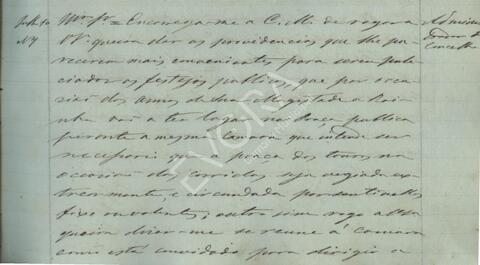 Illmo Sr = Encarrega-me a C. M. de rogar a
VSa queira dar as providencias que lhe pa-
recerem mais convenientes para serem poli-
ciados os festejos publicos, que por occa-
sião dos annos de Sua Magestade a Rai-
nha vão a ter lugar na praça publica
perante a mesma Camara que intende ser
necessario que a praça dos touros na
occasião das corridas seja vigiada ex-
teriormente, e circundada por sentinellas
fixas ou volantes; outro sim rogo a VSa
queira dizer-me se reune á Camara
como está convidada para dirigir o
Adminis-
trador do
Concelho
EVORA